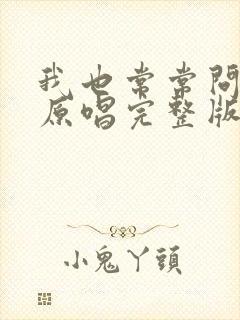 我也常常问
原唱完整版
小鬼丫頭